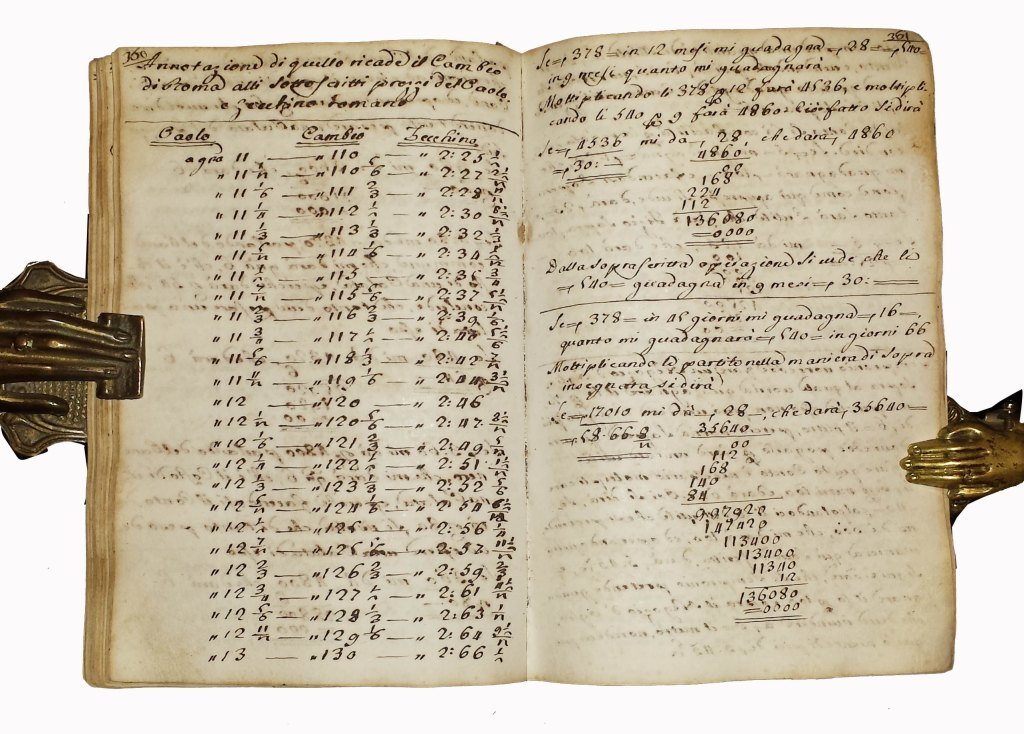 360
Annotazione di quello ricade il Cambio
di Roma alli sottoscritti prezzi del Paolo,
e Zecchino romano
Paolo Cambio Zecchino
a gna 11 — " 110 — " 2:25
" 11 — " 110 — " 2:27
" 11 1/6 — " 111 2/3 — " 2:28
" 11 1/4 — " 112 1/2 — " 2:30
" 11 1/3 — " 113 1/3 — " 2:32
" 11 — " 114 1/6 — " 2:34
" 11 — " 115 — " 2:36
" 11 — " 115 5/6 — " 2:37
" 11 2/3 — " 116 2/3 — " 2:39
" 11 3/4 — " 117 1/2 — " 2:40
" 11 5/6 — " 118 1/3 — " 2:42
" 11 — " 119 1/6 — " 2:44
" 12 — " 120 — " 2:46
" 12 — " 120 5/6 — " 2:47
" 12 1/6 — " 121 2/3 — " 2:49
" 12 1/4 — " 122 1/2 — " 2:51
" 12 1/3 — " 123 1/3 — " 2:52
" 12 — " 124 1/6 — " 2:54
" 12 — " 125 — " 2:56
" 12 — " 125 — " 2:57
" 12 2/3 — " 126 2/3 — " 2:59
" 12 3/4 — " 127 1/2 — " 2:61
" 12 5/6 — " 128 1/3 — " 2:63
" 12 — " 129 1/6 — " 2:64
" 13 — " 130 — " 2:66
361
Se 378 = in 12 mesi mi guadagna 28 = 540
in 9 mesi quanto mi guadagnarà
Moltiplicando li 378 p 12 farà 4536, e moltipli-
cando li 540 p 9 farà 4860. Ciò fatto si dirà
Se 4536 mi dà 28 che darà 4860
30: — 4860
00
168
224
112
136080
= 0000
Dalla soprascritta operazione si vede che li
540 = guadagna in 9 mesi 30: —
Se 378 = in 45 giorni mi guadagna 16 —,
quanto mi guadagnarà 540 = in giorni 66
Moltiplicando le partite nella maniera di sopra
insegnata, si dirà
Se 17010 mi dà 28 —, che darà 35640 —
58.66 35640
00
112
168
140
84
997920
147420
113400
113400
11340
12
136080
= 0000